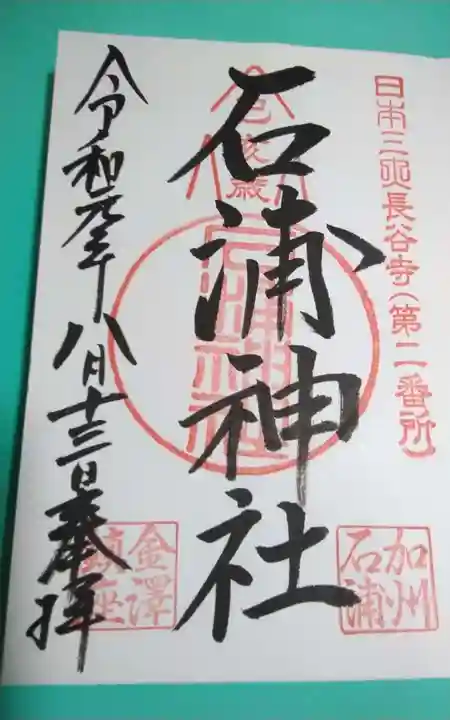 日本三所長谷寺(第二番所)
加州
石浦
石浦神社
金澤
鎮座
令和元年八月十三日奉拝